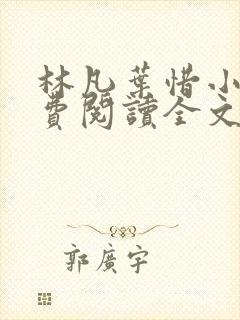 林凡葉惜小
費閱讀全文
郭廣宇